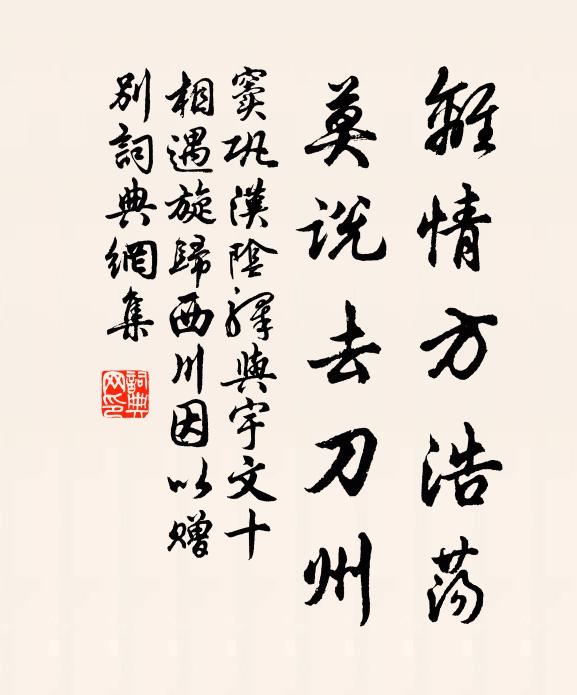 離情方浩蕩
莫說去刀州
竇巩漢陰驛與宇文十
相遇旋歸西川因以贈
別詞典網集
詞典
网印